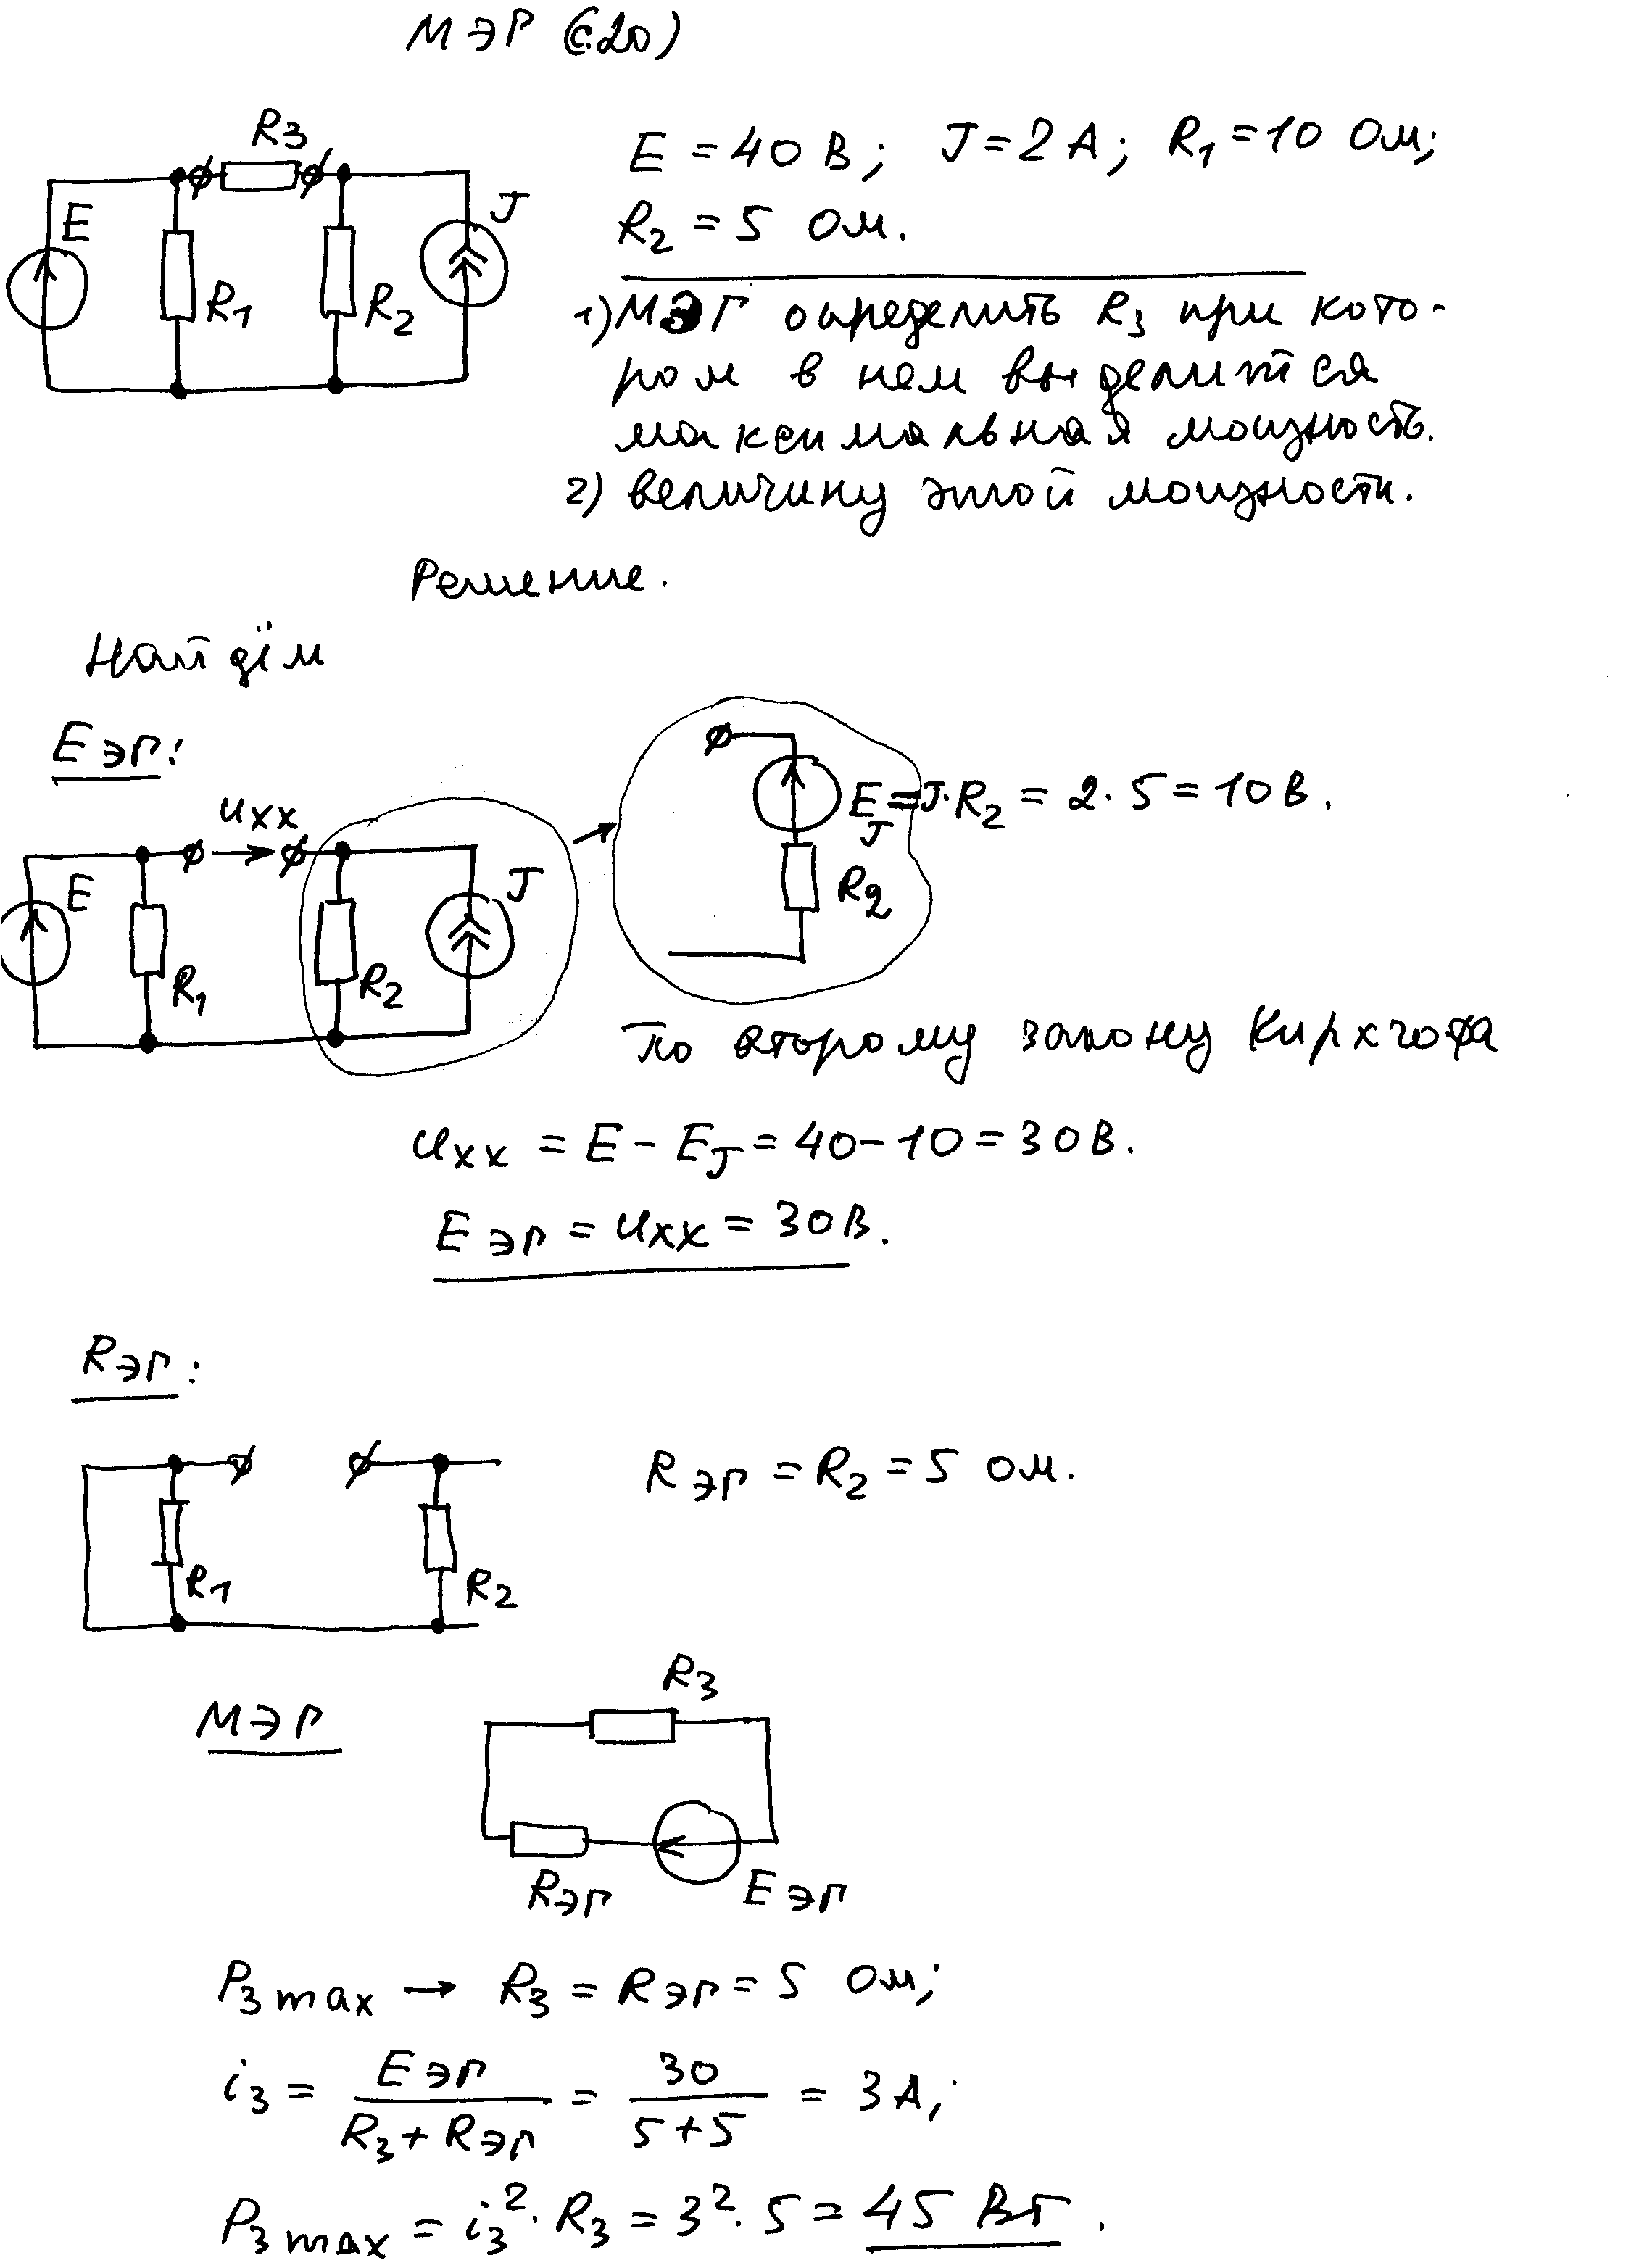 МЭГ (с.20)
R3
E = 40 В; J = 2 А; R1 = 10 Ом;
R2 = 5 Ом.
E
R1
R2
J
1) МЭГ определить R3 при кото-
ром в нем выделится
максимальная мощность.
2) величину этой мощности.
Решение.
Найдём
Eэг:
uхх
E
R1
R2
J
EJ = J·R2 = 2·5 = 10 В.
R2
По второму закону Кирхгофа
uхх = E - EJ = 40 - 10 = 30 В.
Eэг = uхх = 30 В.
Rэг:
R1
R2
Rэг = R2 = 5 Ом.
МЭГ
R3
Rэг
Eэг
P3 max → R3 = Rэг = 5 Ом;
i3 = Eэг / (R3 + Rэг) = 30 / (5+5) = 3 А;
P3 max = i3² · R3 = 3² · 5 = 45 Вт.